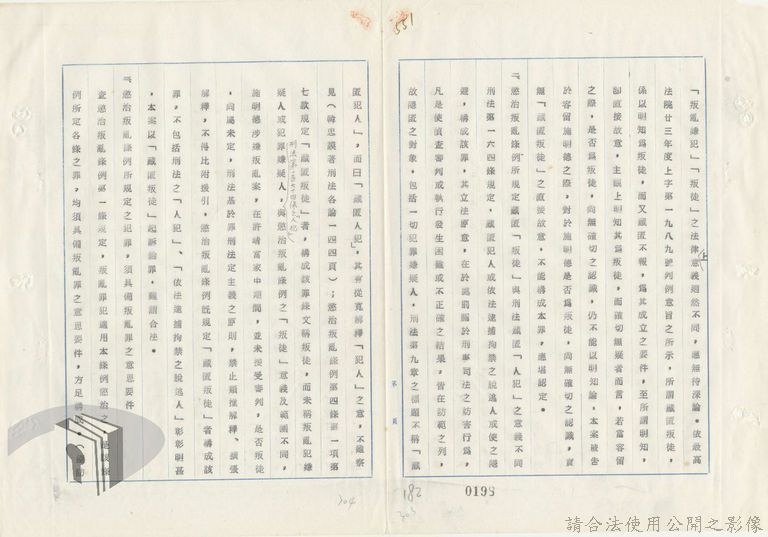 551
「叛亂嫌犯」「叛徒」之法律意義迥然不同,應無待深論。依最高
法院廿三年度上字第一九八九號判例意旨之所示,所謂藏匿叛徒,
係以明知為叛徒,而又藏匿不報,為其成立之要件,至所謂明知,
卻直接故意,主觀上明知其為叛徒,而確切無疑者而言,若當容留
之際,是否為叛徒,尚無確切之認識,仍不能以明知論,本案被告
於容留施明德之際,對於施明德是否為叛徒,尚無確切之認識,
無「藏匿叛徒」之直接故意,不能構成本罪,應堪認定。
『懲治叛亂條例』所規定藏匿「叛徒」與刑法藏匿「人犯」之意義不同
刑法第一六四條規定,藏匿犯人或依法逮捕拘禁之脫逃人或使之隱
避,構成該罪,其立法原意,在於處罰關於刑事司法之妨害行為,
凡是使偵查審判或執行發生困難或不正確之結果,皆在防範之列,
故隱匿之對象,包括一切犯罪嫌疑人,刑法第九章之標題不稱「藏
第 頁
0198
182
303
匿犯人」,而曰「藏匿人犯」,其有從寬解釋「人犯」之意,不難察
見(韓忠謨著刑法各論一四四頁);懲治叛亂條例第四條第一項第
七款規定「藏匿叛徒」者,構成該罪條文稱叛徒,而未稱叛亂犯嫌
疑人或犯罪嫌疑人,與懲治叛亂條例之「叛徒」意義及範圍不同,
施明德涉嫌叛亂案,在許晴富家中期間,並未接受審判,是否叛徒
,尚屬未定,刑法基於罪刑法定主義之原則,禁止類推解釋、擴張
解釋,不得比附援引,懲治叛亂條例既規定「藏匿叛徒」者構成該
罪,不包括刑法之「人犯」、「依法逮捕拘禁之脫逃人」彰彰明甚
,本案以「藏匿叛徒」起訴論罪,難謂合法。
『懲治叛亂條例所規定之犯罪,須具備叛亂罪之意思要件
查懲治叛亂條例第一條規定,叛亂罪犯適用本條例懲治之
例所定各條之罪,均須具備叛亂罪之意思要件,方足構成。
304
請合法使用公開之影像